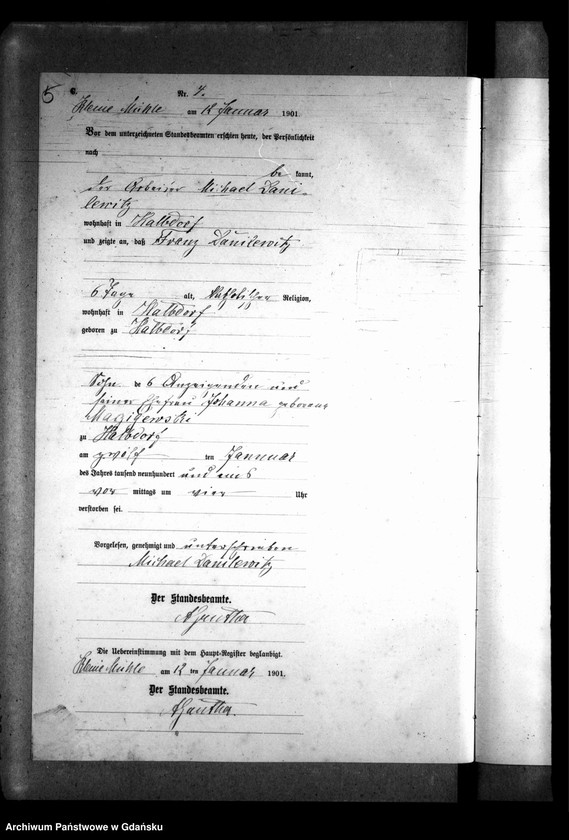 5
Nr. 4.
Kleine Mühle am 12 Januar 1901
Vor dem unterzeichneten Standesbeamten erschien heute, der Persönlichkeit
nach
be kannt,
der Arbeiter Michael Dani-
lewitz
wohnhaft in Kalbdorf
und zeigte an, daß Franz Danilewitz
6 Tage alt, katholischer Religion,
wohnhaft in Kalbdorf
geboren zu Kalbdorf
Sohn des Anzeigenden und
seiner Ehefrau Johanna geborene
zu Kalbdorf
am zwölf ten Januar
des Jahres tausend neunhundert und eins
vor mittags um vier Uhr
verstorben sei.
Vorgelesen, genehmigt und unterschrieben
Michael Danilewitz
Der Standesbeamte.
Die Uebereinstimmung mit dem Haupt-Register beglaubigt.
Kleine Mühle am 12 ten Januar 1901.
Der Standesbeamte.
Archiwum Państwowe w Gdańsku